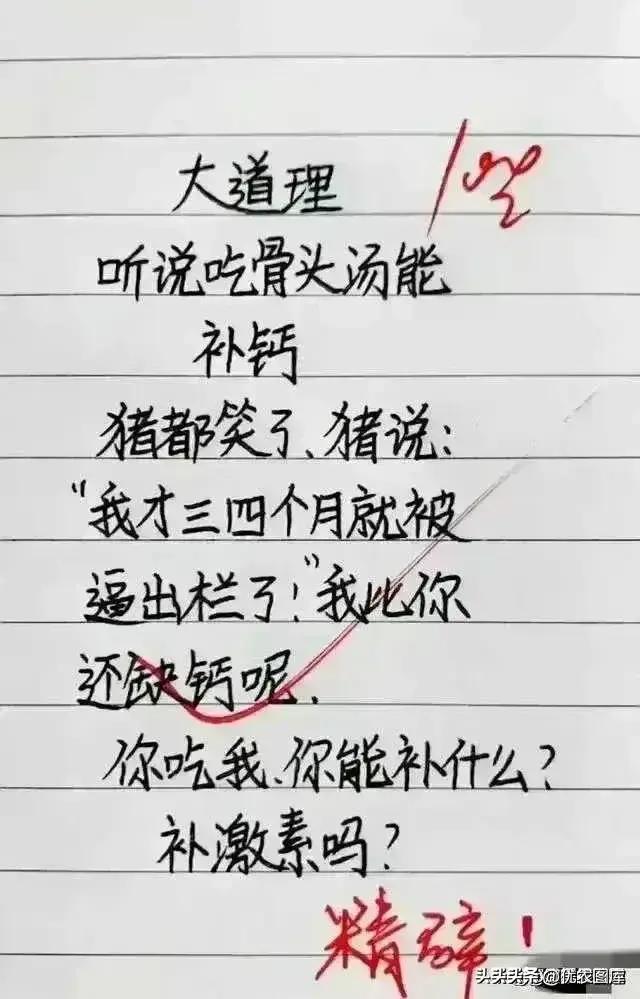 大道理
听说吃骨头汤能
补钙
猪都笑了、猪说:
"我才三四个月就被
逼出栏了!"我比你
还缺钙呢、
你吃我、你能补什么?
补激素吗?
精辟!